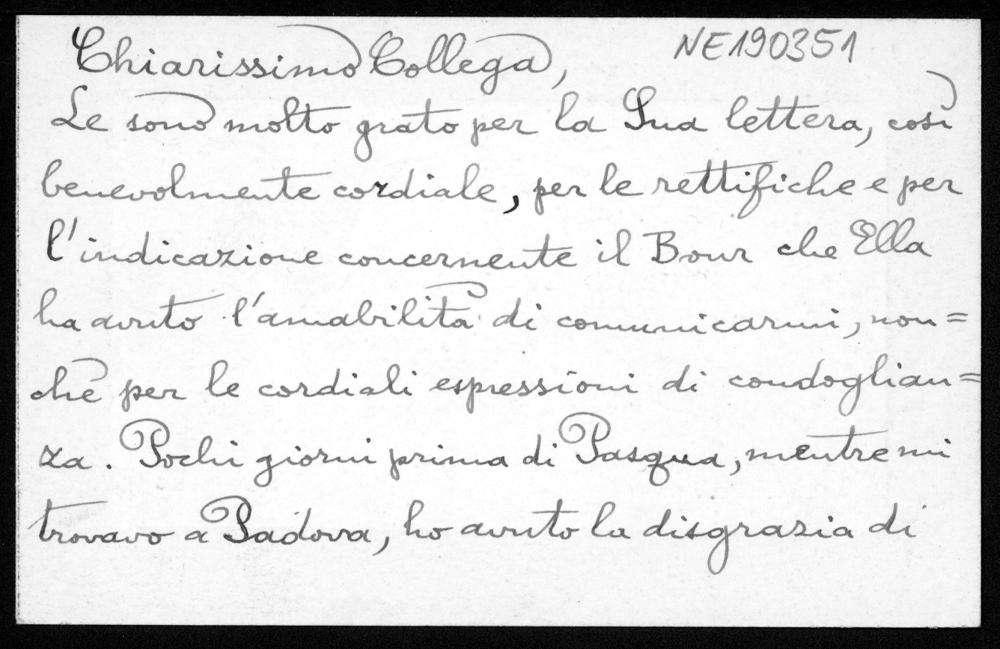 Chiarissimo Collega, NE190351
Le sono molto grato per la Sua lettera, così
benevolmente cordiale, per le rettifiche e per
l'indicazione concernente il Bour che Ella
ha avuto l'amabilità di comunicarmi, non=
chè per le cordiali espressioni di condoglian=
za. Pochi giorni prima di Pasqua, mentre mi
trovavo a Padova, ho avuto la disgrazia di